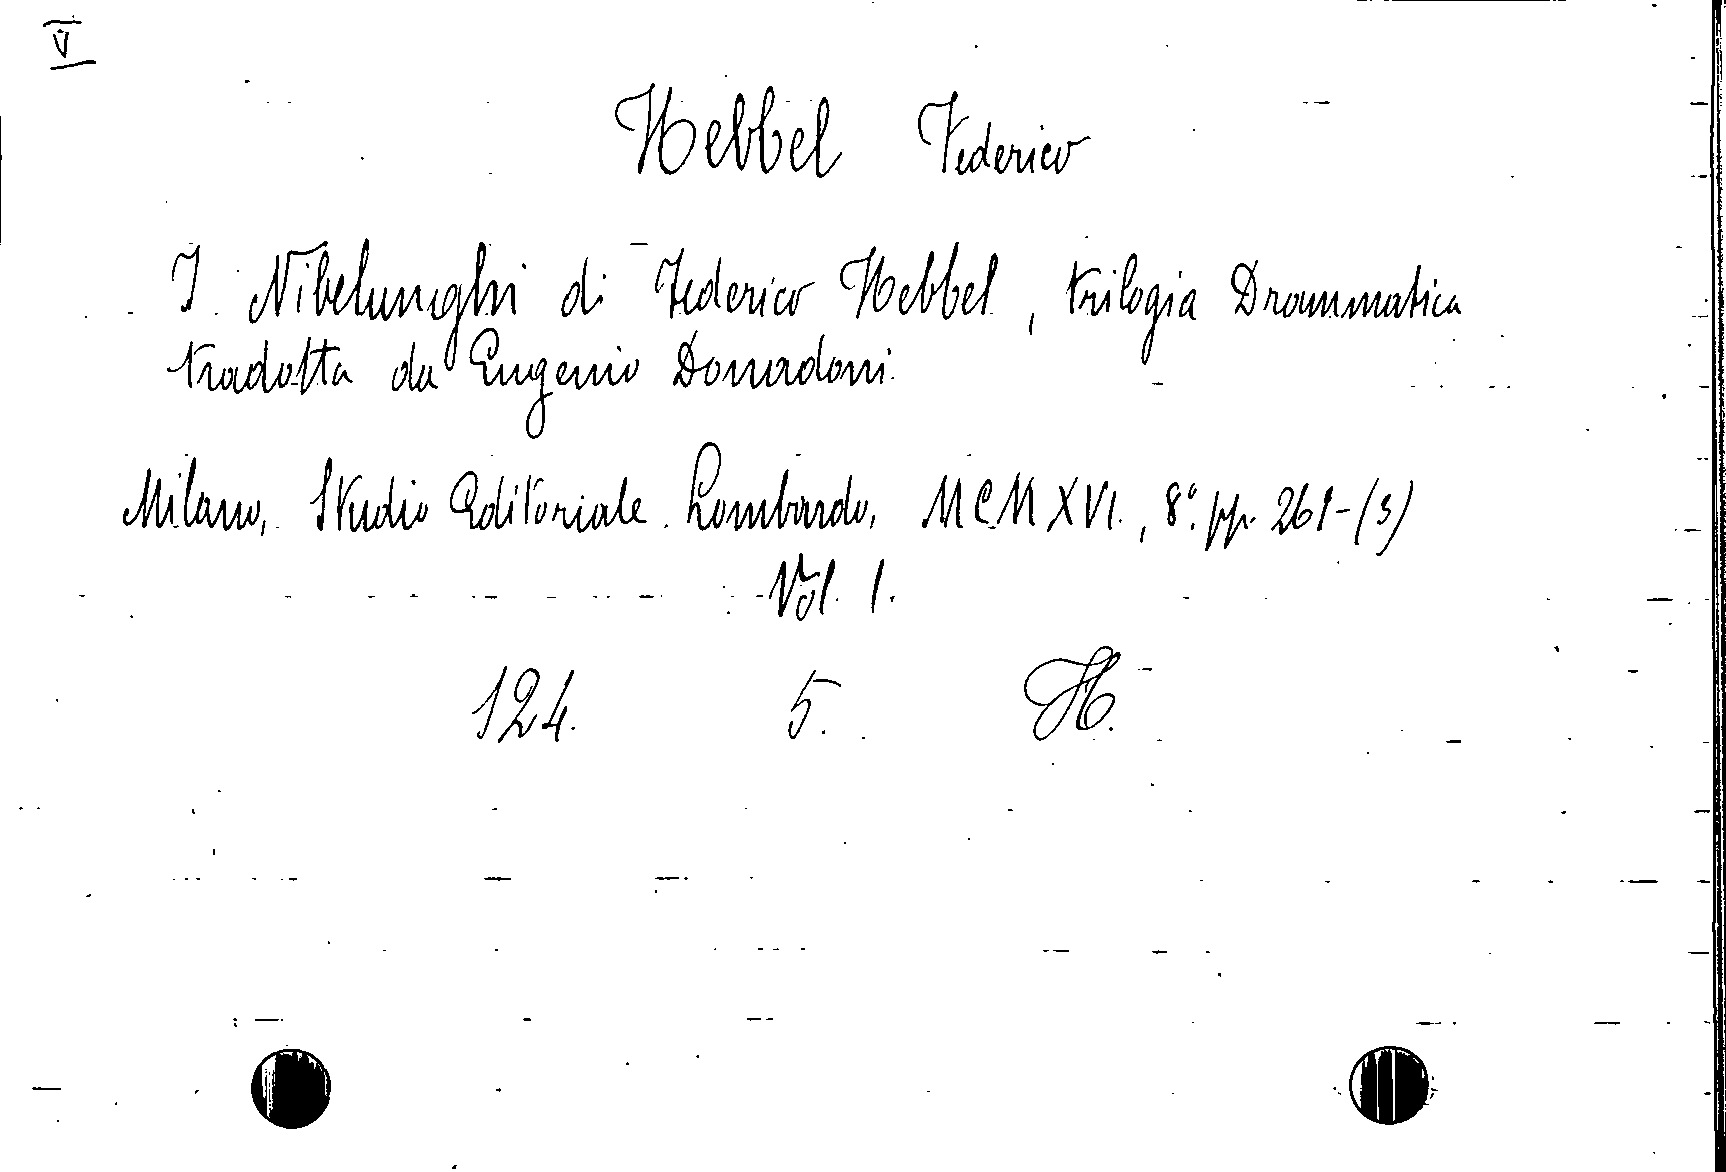 V
Hebbel Federico
I Nibelunghi di Federico Hebbel, trilogia Drammatica
tradotta da Eugenio Donadoni.
Milano, Studio Editoriale Lombardo, MCMXVI., 8° pp. 261-(3)
Vol. 1.
124. 5. H.